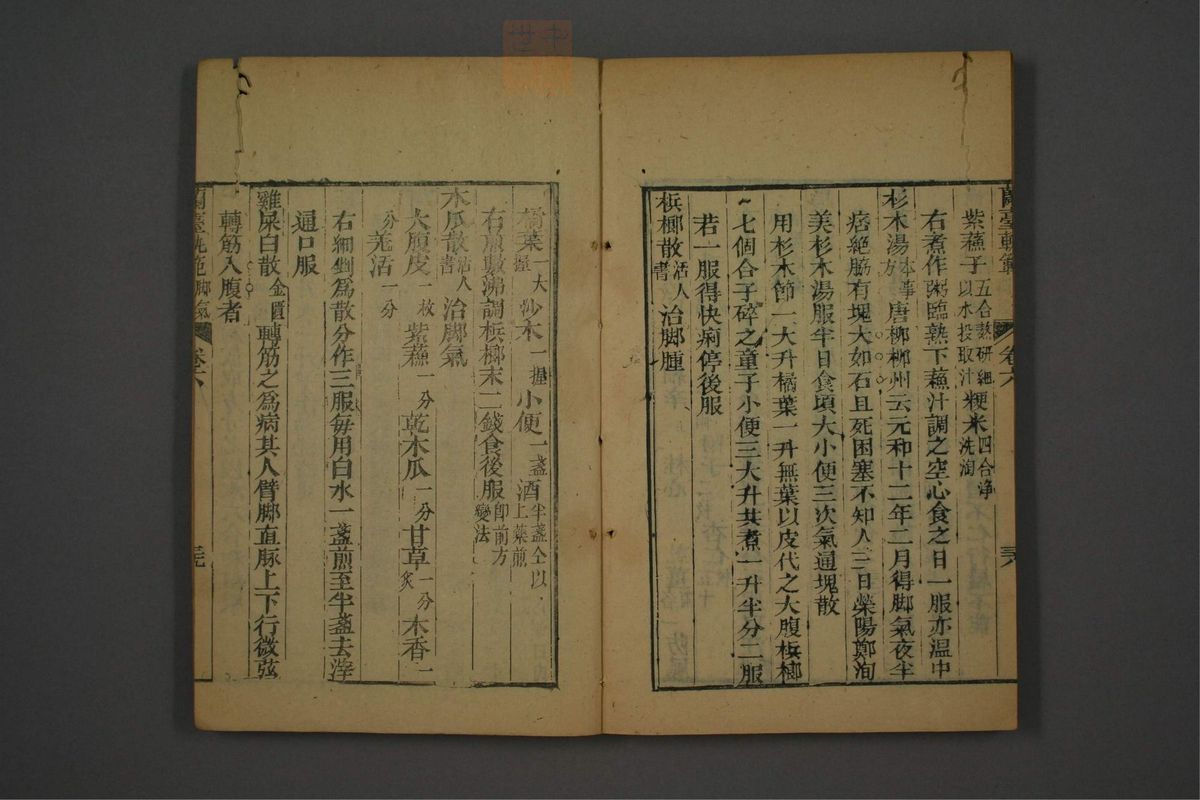 蘭臺軌範 卷六 三六
紫蘇子五合熬研細以水投取汁粳米四合淨洗淘
右煮作粥臨熟下蘇汁調之空心食之日一服亦溫中
杉木湯本事方唐柳柳州云元和十二年二月得脚氣夜半
痞絕脇有塊大如石且死困塞不知人三日滎陽鄭洵
美杉木湯服半日食頃大小便三次氣通塊散
用杉木節一大升橘葉一升無葉以皮代之大腹梹榔
七個合子碎之童子小便三大升共煮一升半分二服
若一服得快痢停後服
梹榔散活人書治脚腫
橘葉一大握沙木一握小便一盞酒半盞仝以上藥煎
右煎數沸調梹榔末二錢食後服即前方變法
木瓜散活人書治脚氣
大腹皮一枚紫蘇一分乾木瓜一分甘草一分炙木香一
分羌活一分
右細剉爲散分作三服每用白水一盞煎至半盞去滓
通口服
雞屎白散金匱轉筋之爲病其人臂脚直脉上下行微弦
轉筋入腹者
蘭臺軌範 脚氣 卷六